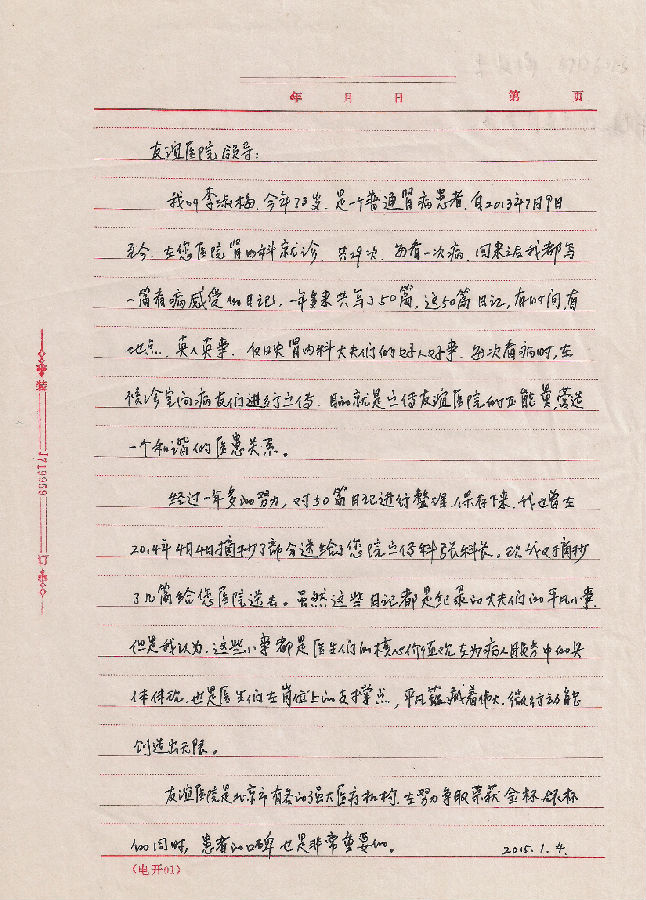 年 月 日 第 页
友谊医院领导：
我叫李淑梅，今年73岁，是一个普通肾病患者，自2013年7月9日
至今，在您医院肾内科就诊，共29次，每看一次病，回来之后我都写
一篇看病感受的日记，一年多来共写了50篇，这50篇日记，有时间，有
地点，真人真事，反映肾内科大夫们的好人好事，每次看病时，在
候诊室向病友们进行宣传，目的就是宣传友谊医院的正能量，营造
一个和谐的医患关系。
经过一年多的努力，对50篇日记进行整理，保存下来，我也曾在
2014年4月4日摘抄了部分送给了您院宣传科张科长。现我又摘抄
了几篇给您医院送去。虽然这些日记都是纪录的大夫们的平凡小事，
但是我认为，这些小事都是医生们的核心价值观在为病人服务中的具
体体现，也是医生们在岗位上的支撑点，平凡蕴藏着伟大，微行动能
创造出无限。
友谊医院是北京市有名的强大医疗机构，在努力争取荣获金杯、银杯
的同时，患者的口碑也是非常重要的。 2015.1.4.
(电开01)
装 J719959 订